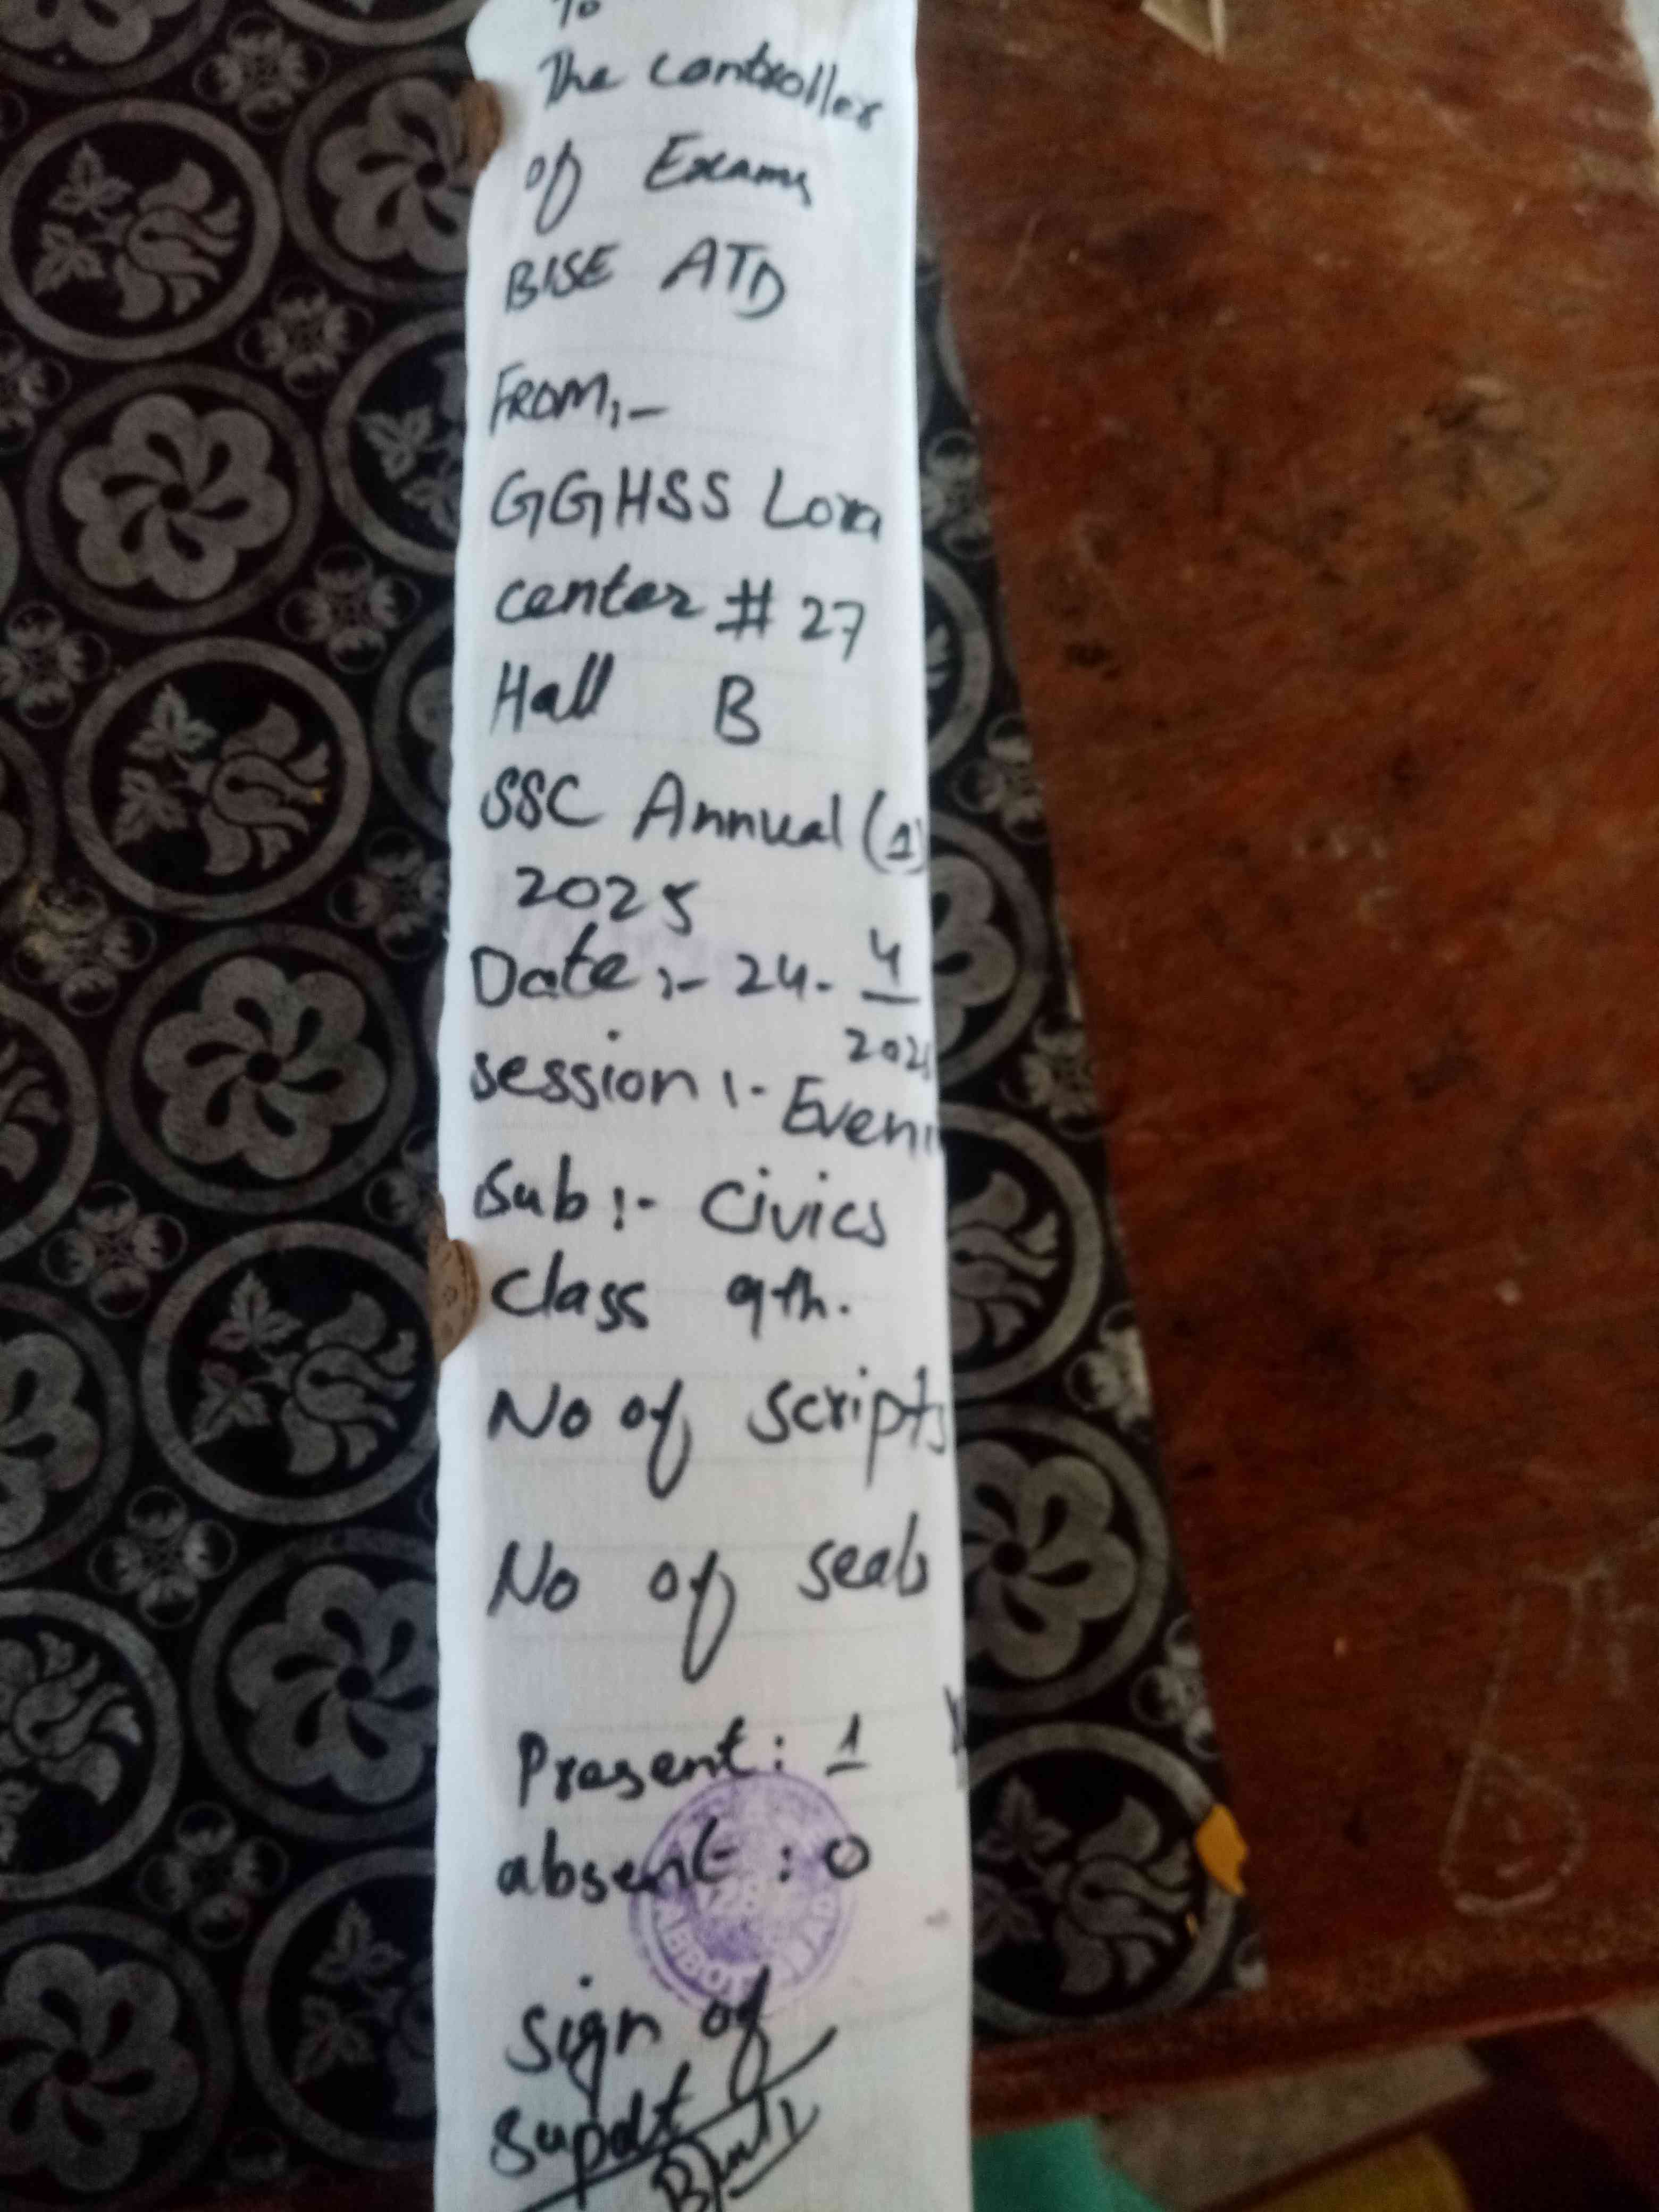 To
The Controller
of Exams
BISE ATD
FROM:-
GGHSS Lora
center # 27
Hall B
SSC Annual (1)
2025
Date:- 24- 4
202
session:- Eveni
Sub:- Civics
Class 9th.
No of scripts
No of seals
Present: 1
absent: 0
Sign of
Supdt